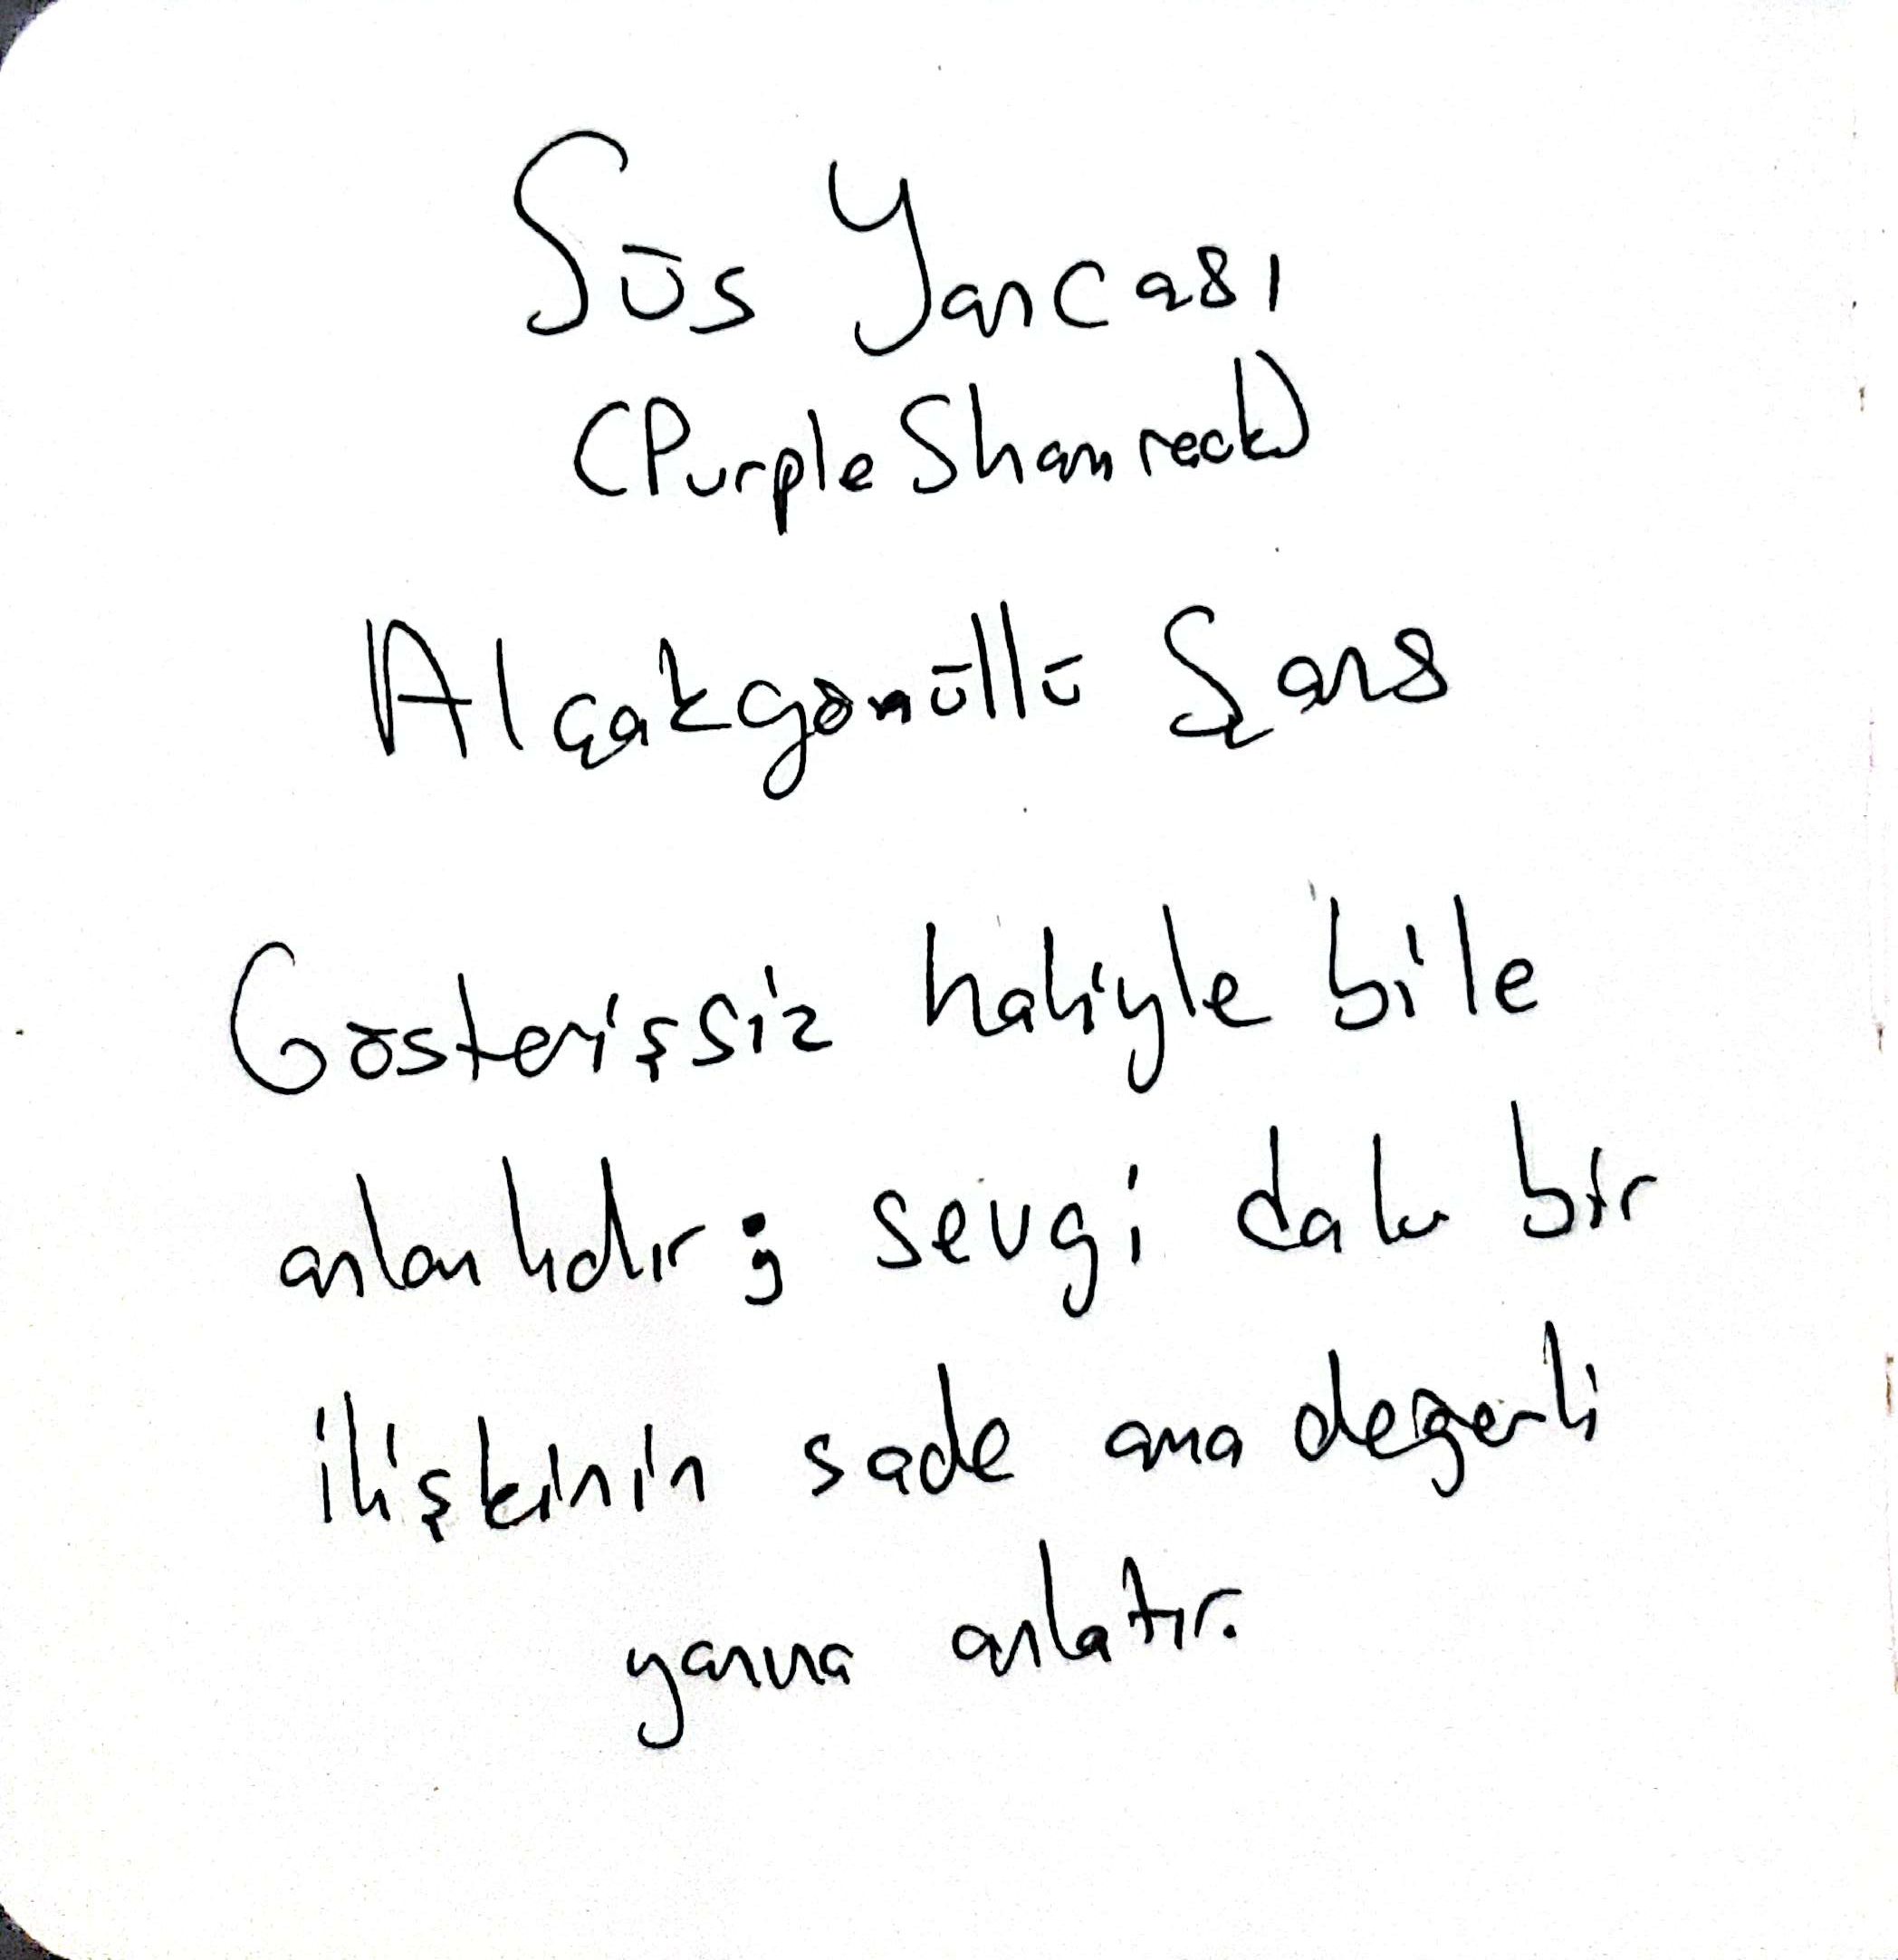 Süs Yoncası
(Purple Shamrock)
Alçakgönüllü Şans
Gösterişsiz haliyle bile
anlamlıdır; sevgi dolu bir
ilişkinin sade ama değerli
yanına anlatır.